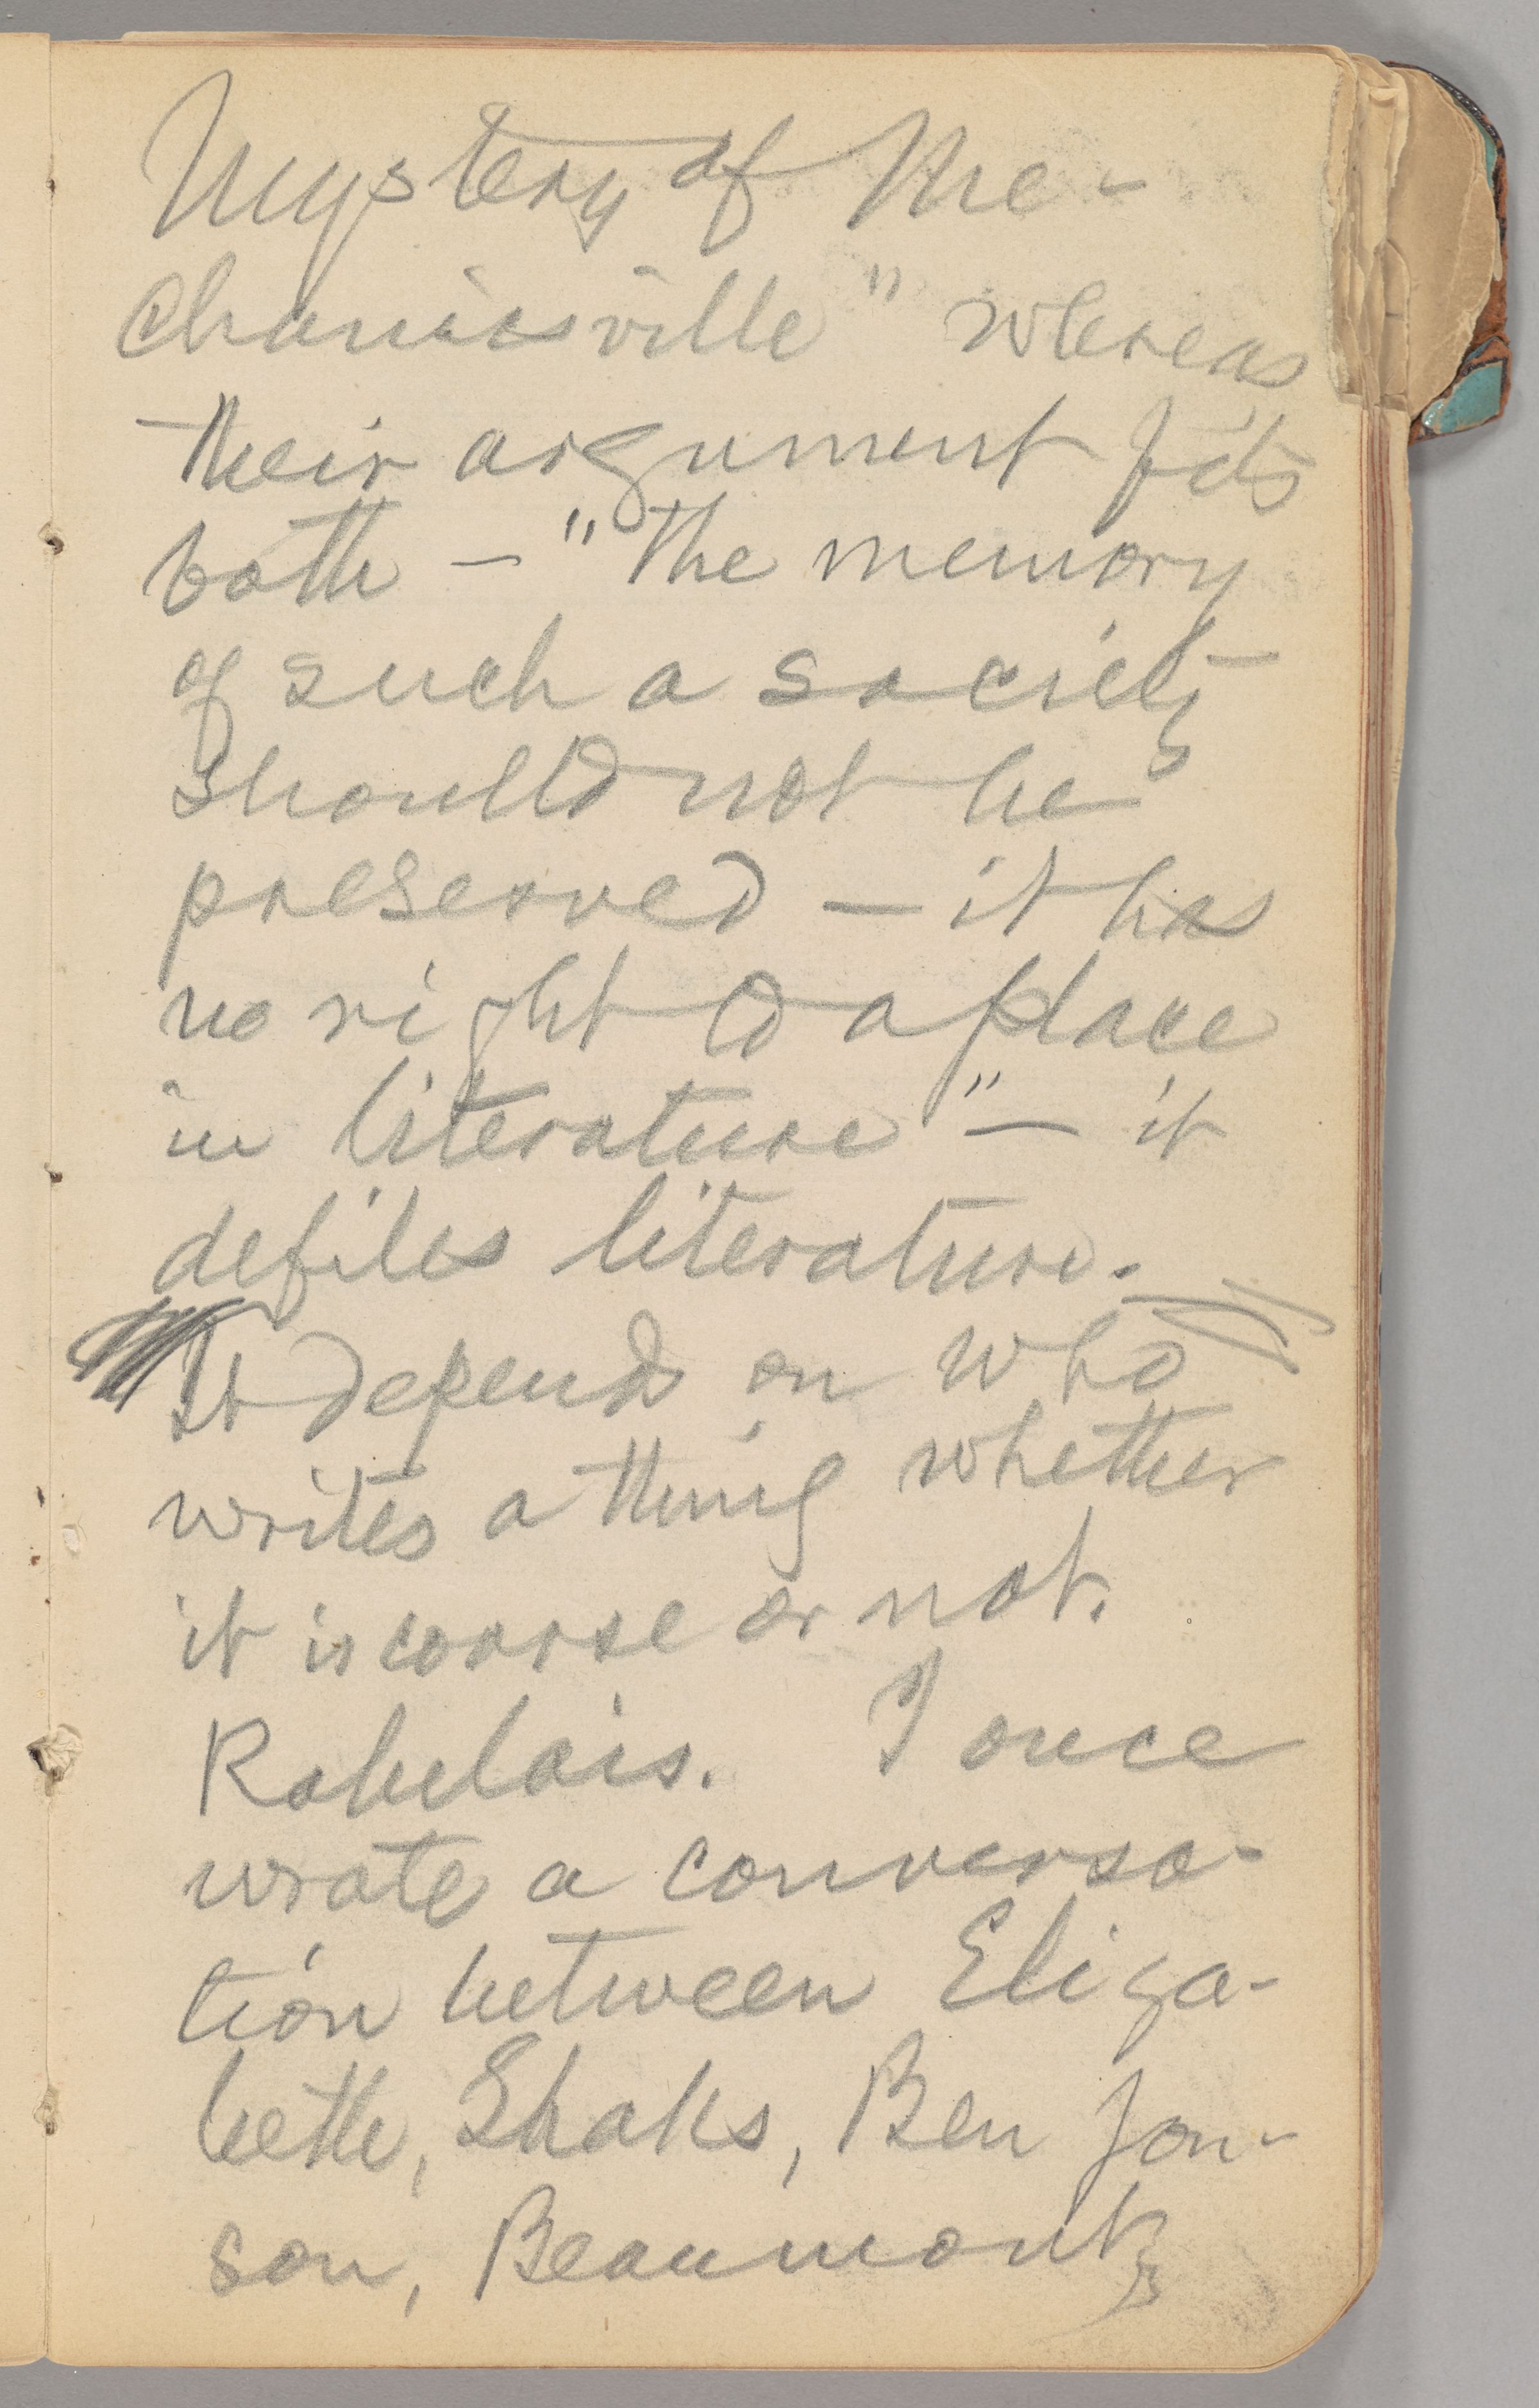 Mystery of Me-
chanicsville" whereas
their argument fits
both — "The memory
of such a society
should not be
preserved — it has
no right to a place
in literature" — it
defiles literature.
It depends on who
writes a thing whether
it is coarse or not.
Rabelais. I once
wrote a conversa-
tion between Eliza-
beth, Shaks, Ben Jon-
son, Beaumont,